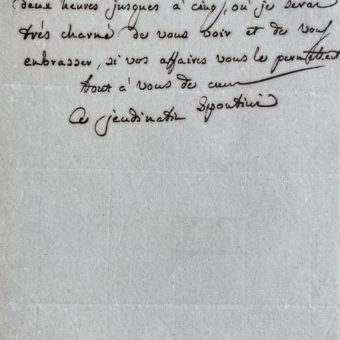 deux heures jusques à cinq, où je serai
très charmé de vous voir et de vous
embrasser, si vos affaires vous le permettent
tout à vous de cœur
Spontini
Ce jeudi matin